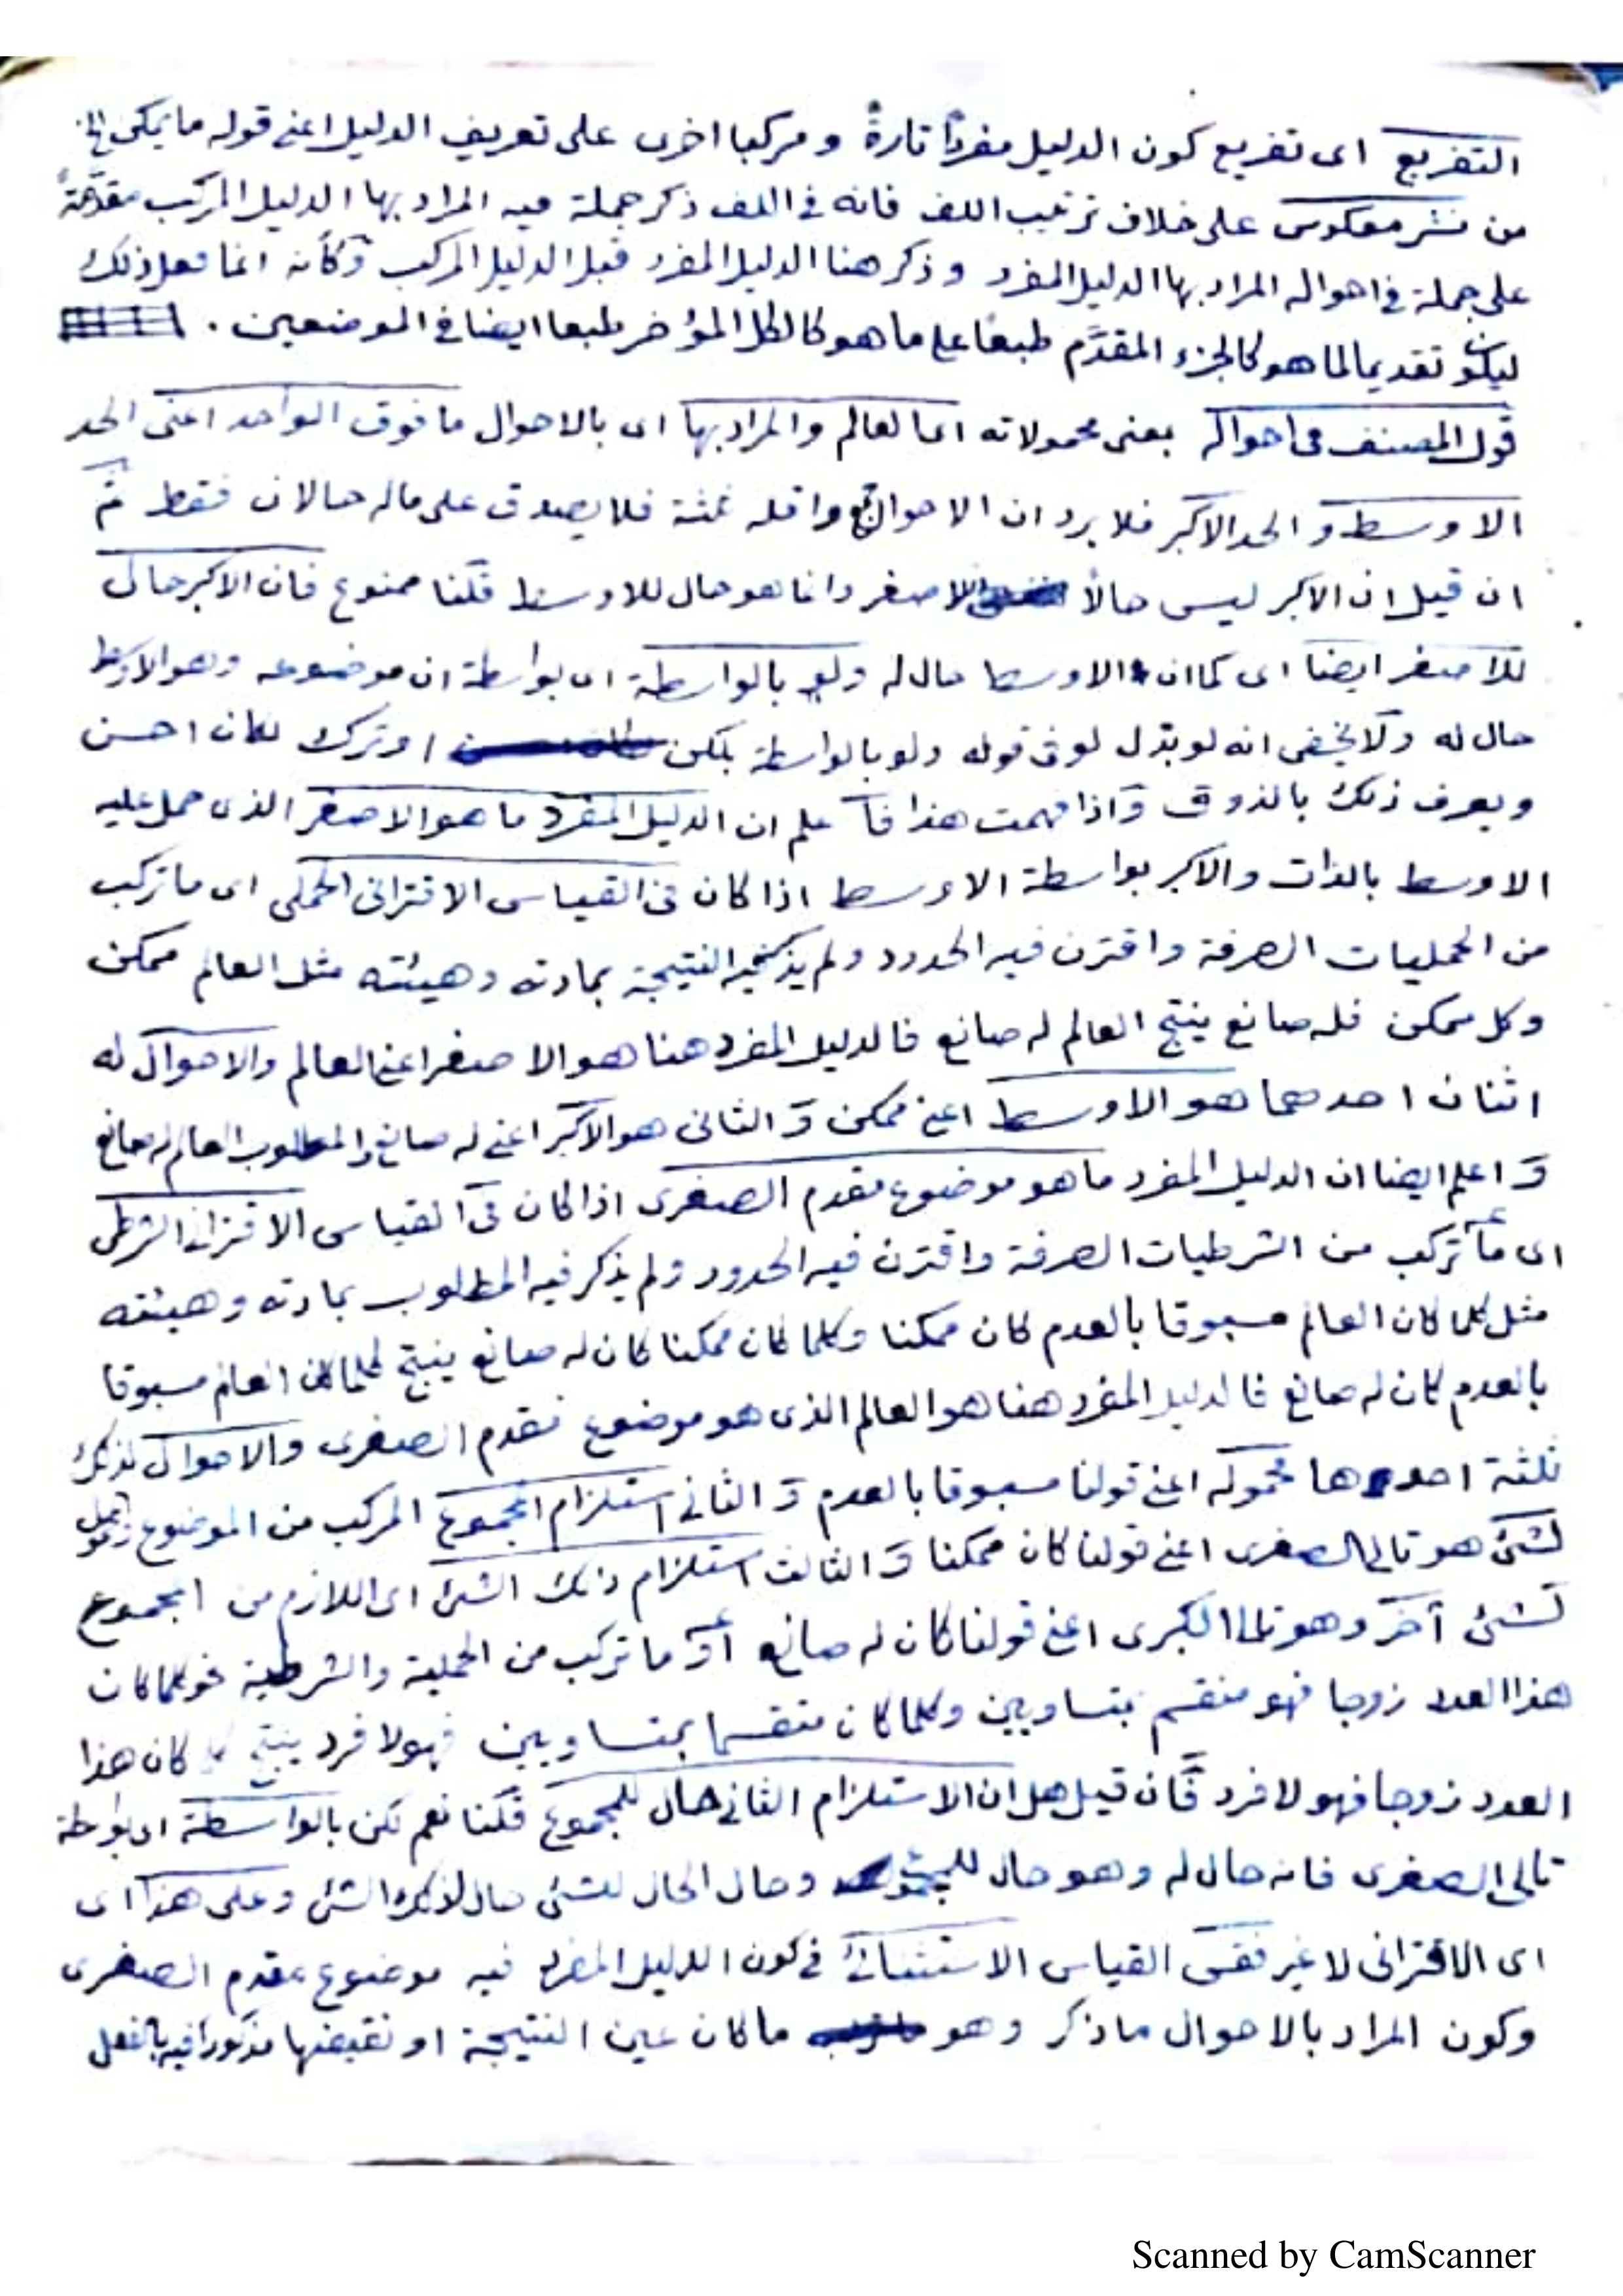 التفريع اى تفريع كون الدليل مفردًا تارةً و مركبا اخرى على تعريف الدليل اعنى قوله ما يمكن الخ
من نشر معكوس على خلاف ترتيب اللف فانه فى اللف ذكر جملة فيه المراد بها الدليل المركب مقدمة
على جملة فى احواله المراد بها الدليل المفرد و ذكر هنا الدليل المفرد قبل الدليل المركب وكأنه انما فعل ذلك
ليكون تقديما لما هو كالجزء المقدَّم طبعًا على ما هو كالكل المؤخر طبعا ايضا فى الموضعين .
قول المصنف فى احواله بمعنى محمولاته اى العالم والمراد بها اى بالاحوال ما فوق الواحد اعنى الحد
الاوسط و الحد الاكبر فلا يرد ان الاحوال واقله ثلثة فلا يصدق على ماله حالان فقط ثم
ان قيل ان الاكبر ليس حالاً للاصغر وانما هو حال للاوسط قلنا ممنوع فان الاكبر حال
للاصغر ايضا اى كما ان الاوسط حال له ولو بالواسطة اى بواسطة ان موضوعه وهو الاوسط
حال له ولا يخفى انه لو بدل لو فى قوله ولو بالواسطة بلكن او ترك لكان احسن
ويعرف ذلك بالذوق واذا فهمت هذا فاعلم ان الدليل المفرد ما هو الاصغر الذى حمل عليه
الاوسط بالذات والاكبر بواسطة الاوسط اذا كان فى القياس الاقترانى الحملى اى ما تركب
من الحمليات الصرفة واقترن فيه الحدود ولم يذكر فيه النتيجة بمادته وهيئته مثل العالم ممكن
وكل ممكن فله صانع ينتج العالم له صانع فالدليل المفرد هنا هو الاصغر اعنى العالم والاحوال له
اثنان احدهما هو الاوسط اعنى ممكن و الثانى هو الاكبر اعنى له صانع والمطلوب العالم له صانع
و اعلم ايضا ان الدليل المفرد ما هو موضوع مقدم الصغرى اذا كان فى القياس الاقترانى الشرطى
اى ما تركب من الشرطيات الصرفة واقترن فيه الحدود ولم يذكر فيه المطلوب بمادته وهيئته
مثل كلما كان العالم مسبوقا بالعدم كان ممكنا وكلما كان ممكنا كان له صانع ينتج كلما كان العالم مسبوقا
بالعدم كان له صانع فالدليل المفرد هنا هو العالم الذى هو موضوع مقدم الصغرى والاحوال لذلك
ثلثة احدها محموله اعنى قولنا مسبوقا بالعدم و الثانى استلزام المجموع المركب من الموضوع
لشئ هو تالى الصغرى اعنى قولنا كان ممكنا و الثالث استلزام ذلك الشئ اى اللازم من المجموع
لشئ آخر وهو تالى الكبرى اعنى قولنا كان له صانع او ما تركب من الحملية والشرطية نحو كلما كان
هذا العدد زوجا فهو منقسم بمتساويين وكلما كان منقسما بمتساويين فهو لا فرد ينتج كلما كان هذا
العدد زوجا فهو لا فرد فان قيل هل ان الاستلزام الثانى حال للمجموع قلنا نعم لكن بالواسطة اى بواسطة
تالى الصغرى فانه حال له وهو حال للمجموع وحال الحال لشئ حال لذلك الشئ وعلى هذا اى
اى الاقترانى لا غير فقس القياس الاستثنائى فى كون الدليل المفرد فيه موضوع مقدم الصغرى
وكون المراد بالاحوال ما ذكر وهو ما كان عين النتيجة او نقيضها مذكورا فيه بالفعل
Scanned by CamScanner